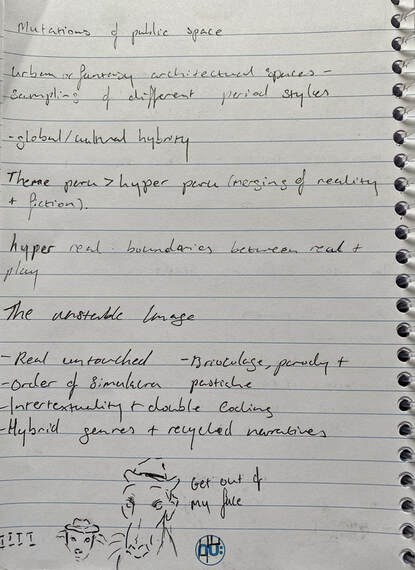 Mutations of public space
Urban x fantasy architectural spaces -
sampling of different period styles
- global/cultural hybrity
Theme park > hyper park (merging of reality
+ fiction).
hyper real. boundaries between real +
play
The unstable Image
- Real untouched - Bricolage, parody +
- Order of Simulacra pastiche
- Intertextuality + double coding
- Hybrid genres + recycled narratives
Get out of
my face